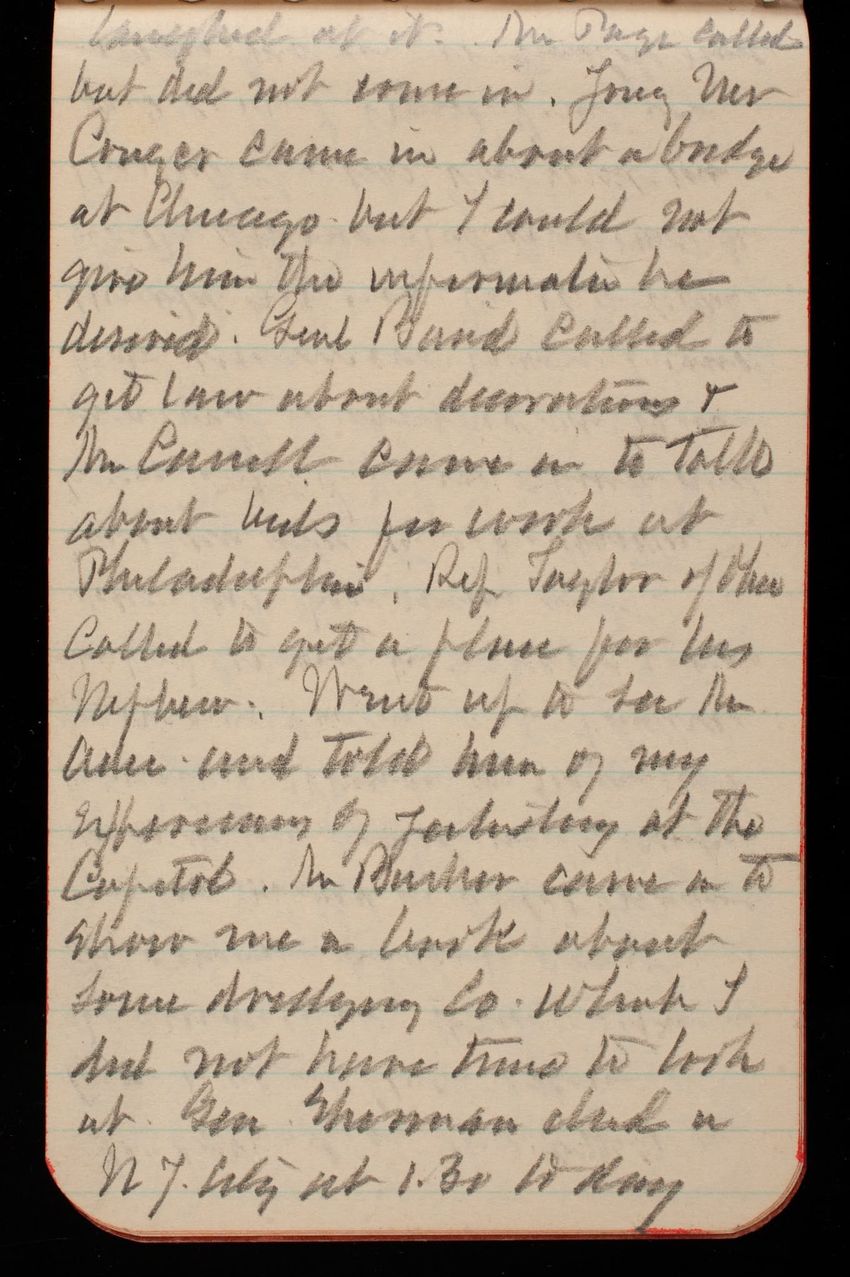 laughed at it. Mr Page called
but did not come in. Young Mr
Conger came in about a bridge
at Chicago but I could not
give him the informatin he
desired. Genl Baird called to
get law about decorations &
Mr came in to talk
about bids for work at
Philadelphia. Rep Taylor of Ohio
called to get a place for his
Nephew. Went up to see Mr
and told him of my
experiences of yesterday at the
Capitol. Mr came in to
show me a book about
some dredging Co. which I
did not have time to look
at. Gen Sherman died in
N Y. City at 1.30 to day